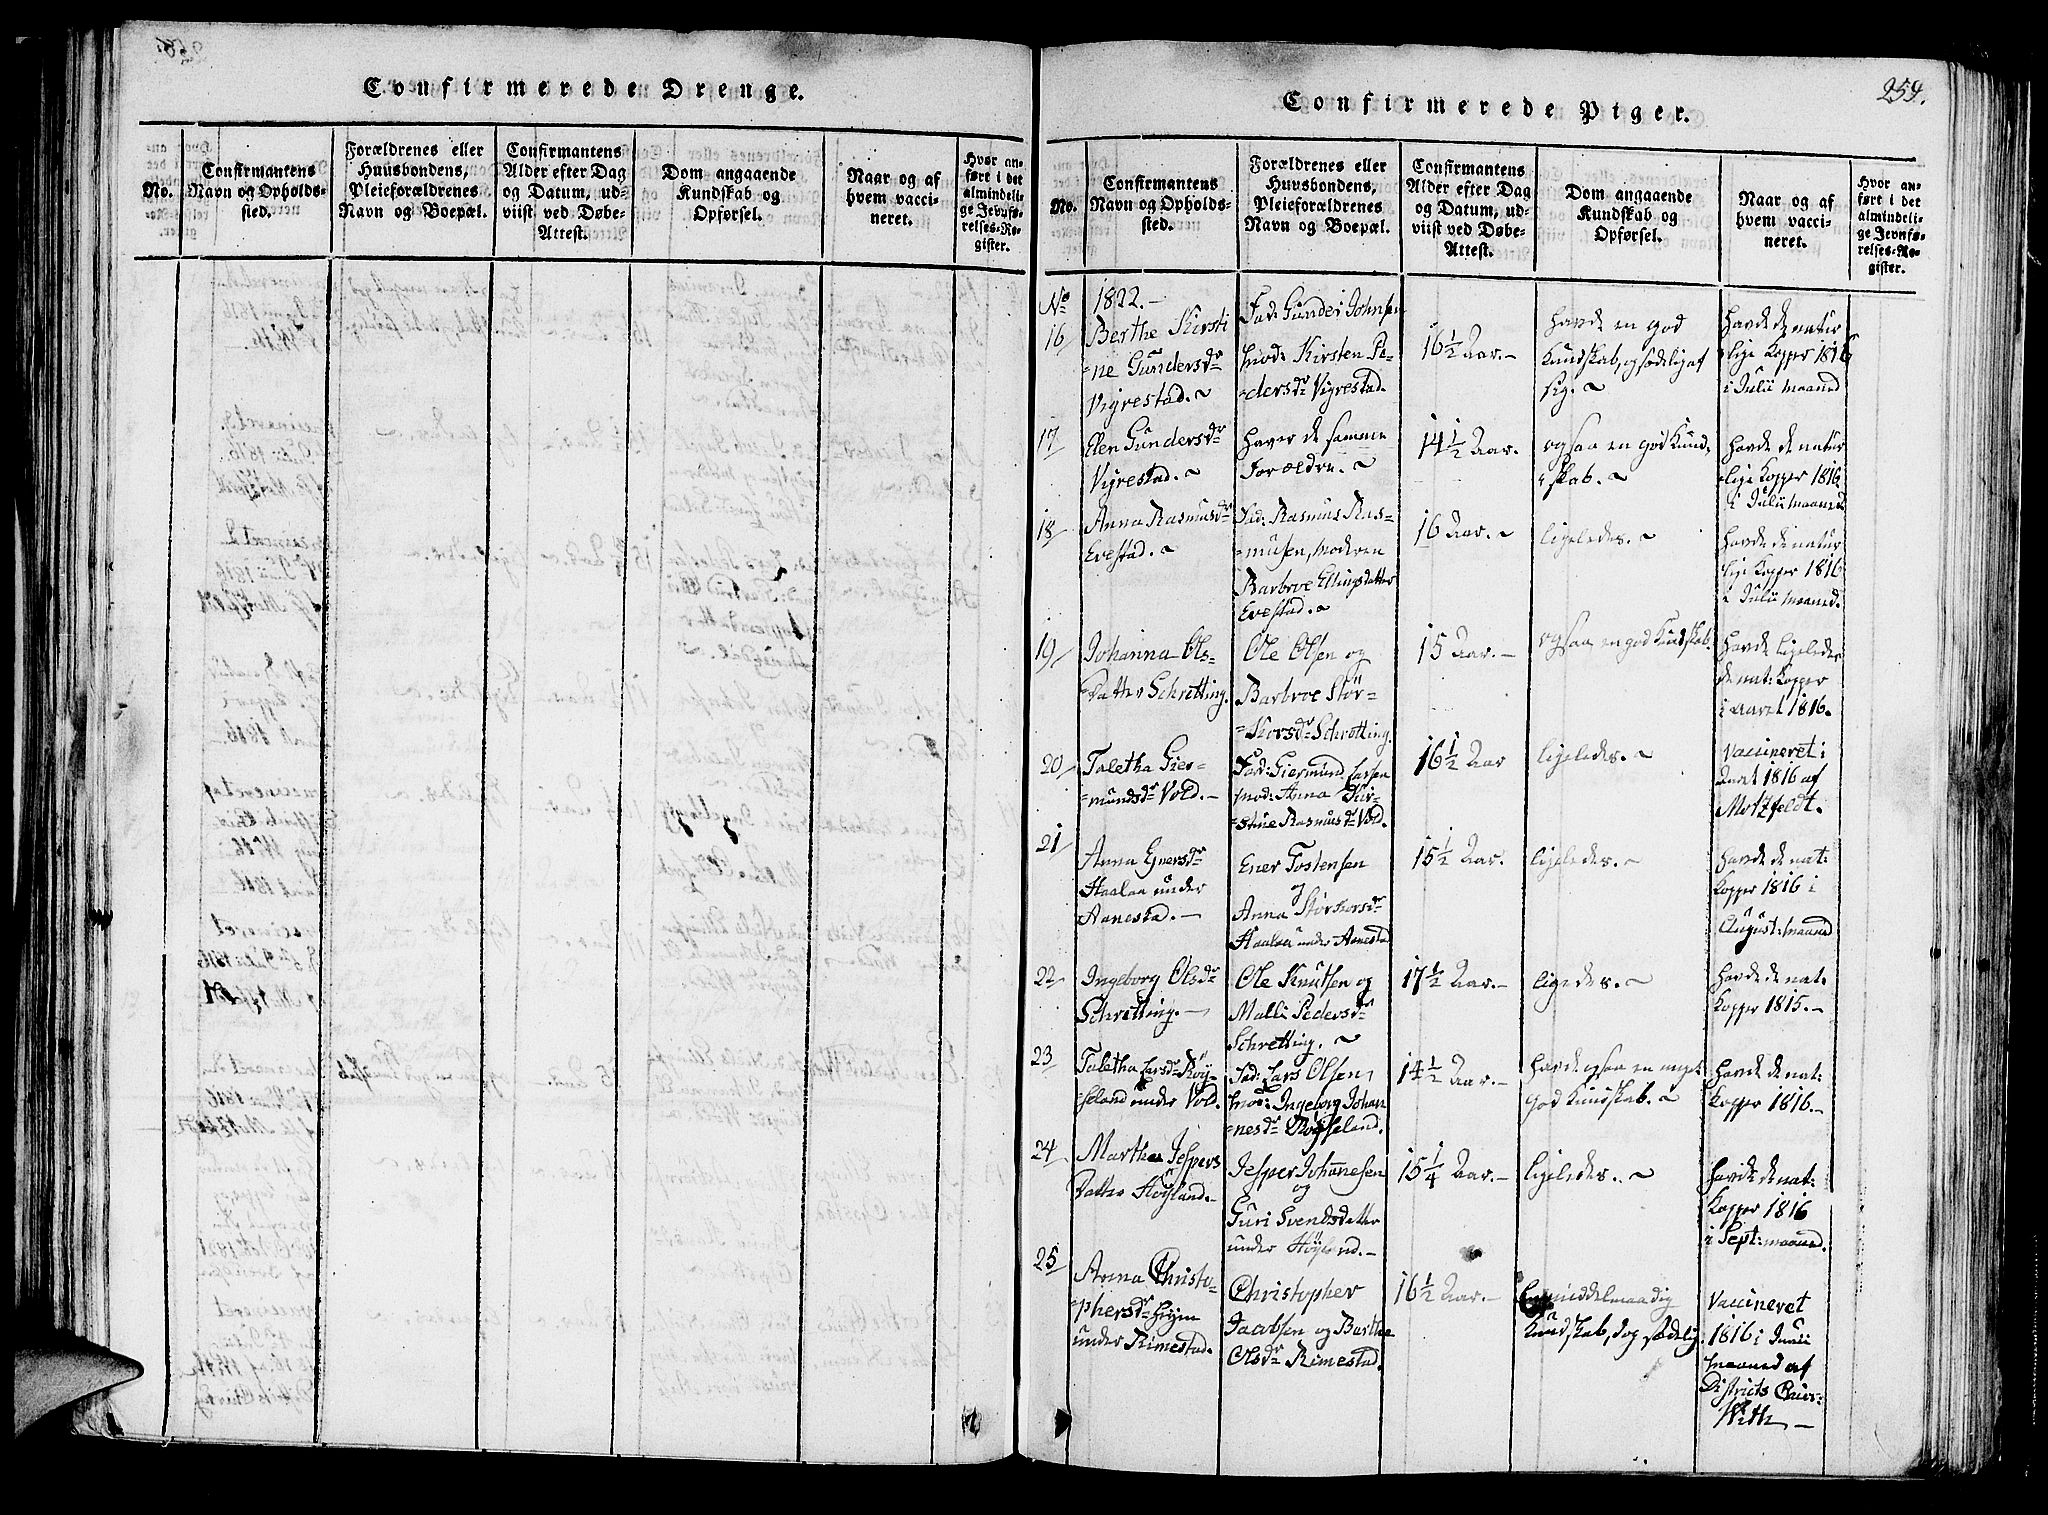 Confirmerede Drenge.
No.
Confirmantens
Navn og Opholds-
sted.
Forældrenes eller
Huusbondens,
Pleieforældrenes
Navn og Boepæl.
Confirmantens
Alder efter Dag
og Datum, ud-
viist ved Døbe-
Attest.
Dom angaaende
Kundskab og
Opførsel.
Naar og af
hvem vacci-
neret.
Hvor an-
ført i det
almindeli-
ge Jevnfø-
relses-Re-
gister.
Confirmerede Piger.
259.
No.
Confirmantens
Navn og Opholds-
sted.
Forældrenes eller
Huusbondens,
Pleieforældrenes
Navn og Boepæl.
Confirmantens
Alder efter Dag
og Datum, ud-
viist ved Døbe-
Attest.
Dom angaaende
Kundskab og
Opførsel.
Naar og af
hvem vacci-
neret.
Hvor an-
ført i det
almindeli-
ge Jevnfø-
relses-Re-
gister.
No 1822.-
16/
Berthe Kirsti
=ne Gundersdr
Vigrestad.
Fad: Gunder Johnsen
Mod: Kirsten Pe-
=dersdr Vigrestad.
16 1/2 Aar.-
Havde en god
Kundskab, og sædelig af
sig.
Havde de natur
lige Kopper 1816
i Julii maaned
17/
Elen Gundersdr
Vigrestad.
Haver de samme
Forældre.
14 1/2 Aar.
ogsaa en god Kund
skab.
Havde de natur
lige Kopper 1816
i Julii maaned
18/
Anna Rasmusdr
Evestad.
Fad: Rasmus Ras-
=musen, Moderen
Barbroe Ellingsdatter
Evestad.
16 Aar.
ligeledes.
Havde de natur
lige Kopper 1816
i Julii maaned.
19/
Johanna Ols-
Datter Schretting.
Ole Olsen og
Barbroe Stör-
=Korsdr Schrotting.
15 Aar.-
ogsaa en god Kundskab.
Havde ligeledes
de nat: Kopper
i Aaret 1816.
20/
Taletha Gier-
=mundsdr Vold.-
Fad: Giermund Larsen
Mod: Anna Kir-
=stine Rasmusdr Vold.
16 1/2 Aar
ligeledes.
Vaccineret i
Aaret 1816 af
Motzfeldt.
21/
Anna Enersdr
Haalaa under
Aanestad.-
Ener Tostensen
og
Anna Störkorsdr
Haalaa under Aanestad
15 1/2 Aar.
ligeledes.
Havde de nat:
Kopper 1816 i
August: maaned
22/
Ingeborg Olsdr
Schretting.-
Ole Knutsen og
Malli Pedersdr
Schretting.
17 1/2 Aar.-
ligedes.
Havde de nat:
Kopper 1815.-
23
Taletha Larsdr Röy-
=seland under Vold.
Fad: Lars Olsen,
Mod: Ingeborg Johan
=nesdr Röysseland.
14 1/2 Aar.-
Havde ogsaa en meget
god Kundskab.
Havde de nat:
Kopper 1816.-
24
Martha Jespers
Datter Höyland.-
Jesper Johannesen
og
Guri Svendsdatter
under Höyland.-
15 1/4 Aar.-
ligeledes.
Havde de nat:
Kopper 1816
i Sept: maaned.
25/
Anna Christo-
=phersdr
under Rimestad.
Christopher
Jacobsen og Barthe
Olsdr Rimestad.
16 1/2 Aar.-
middelmaadig
Kundskab, dog sædelig.
Vaccineret
1816 i Junii
maaned af
Districts Chirr:
With.-